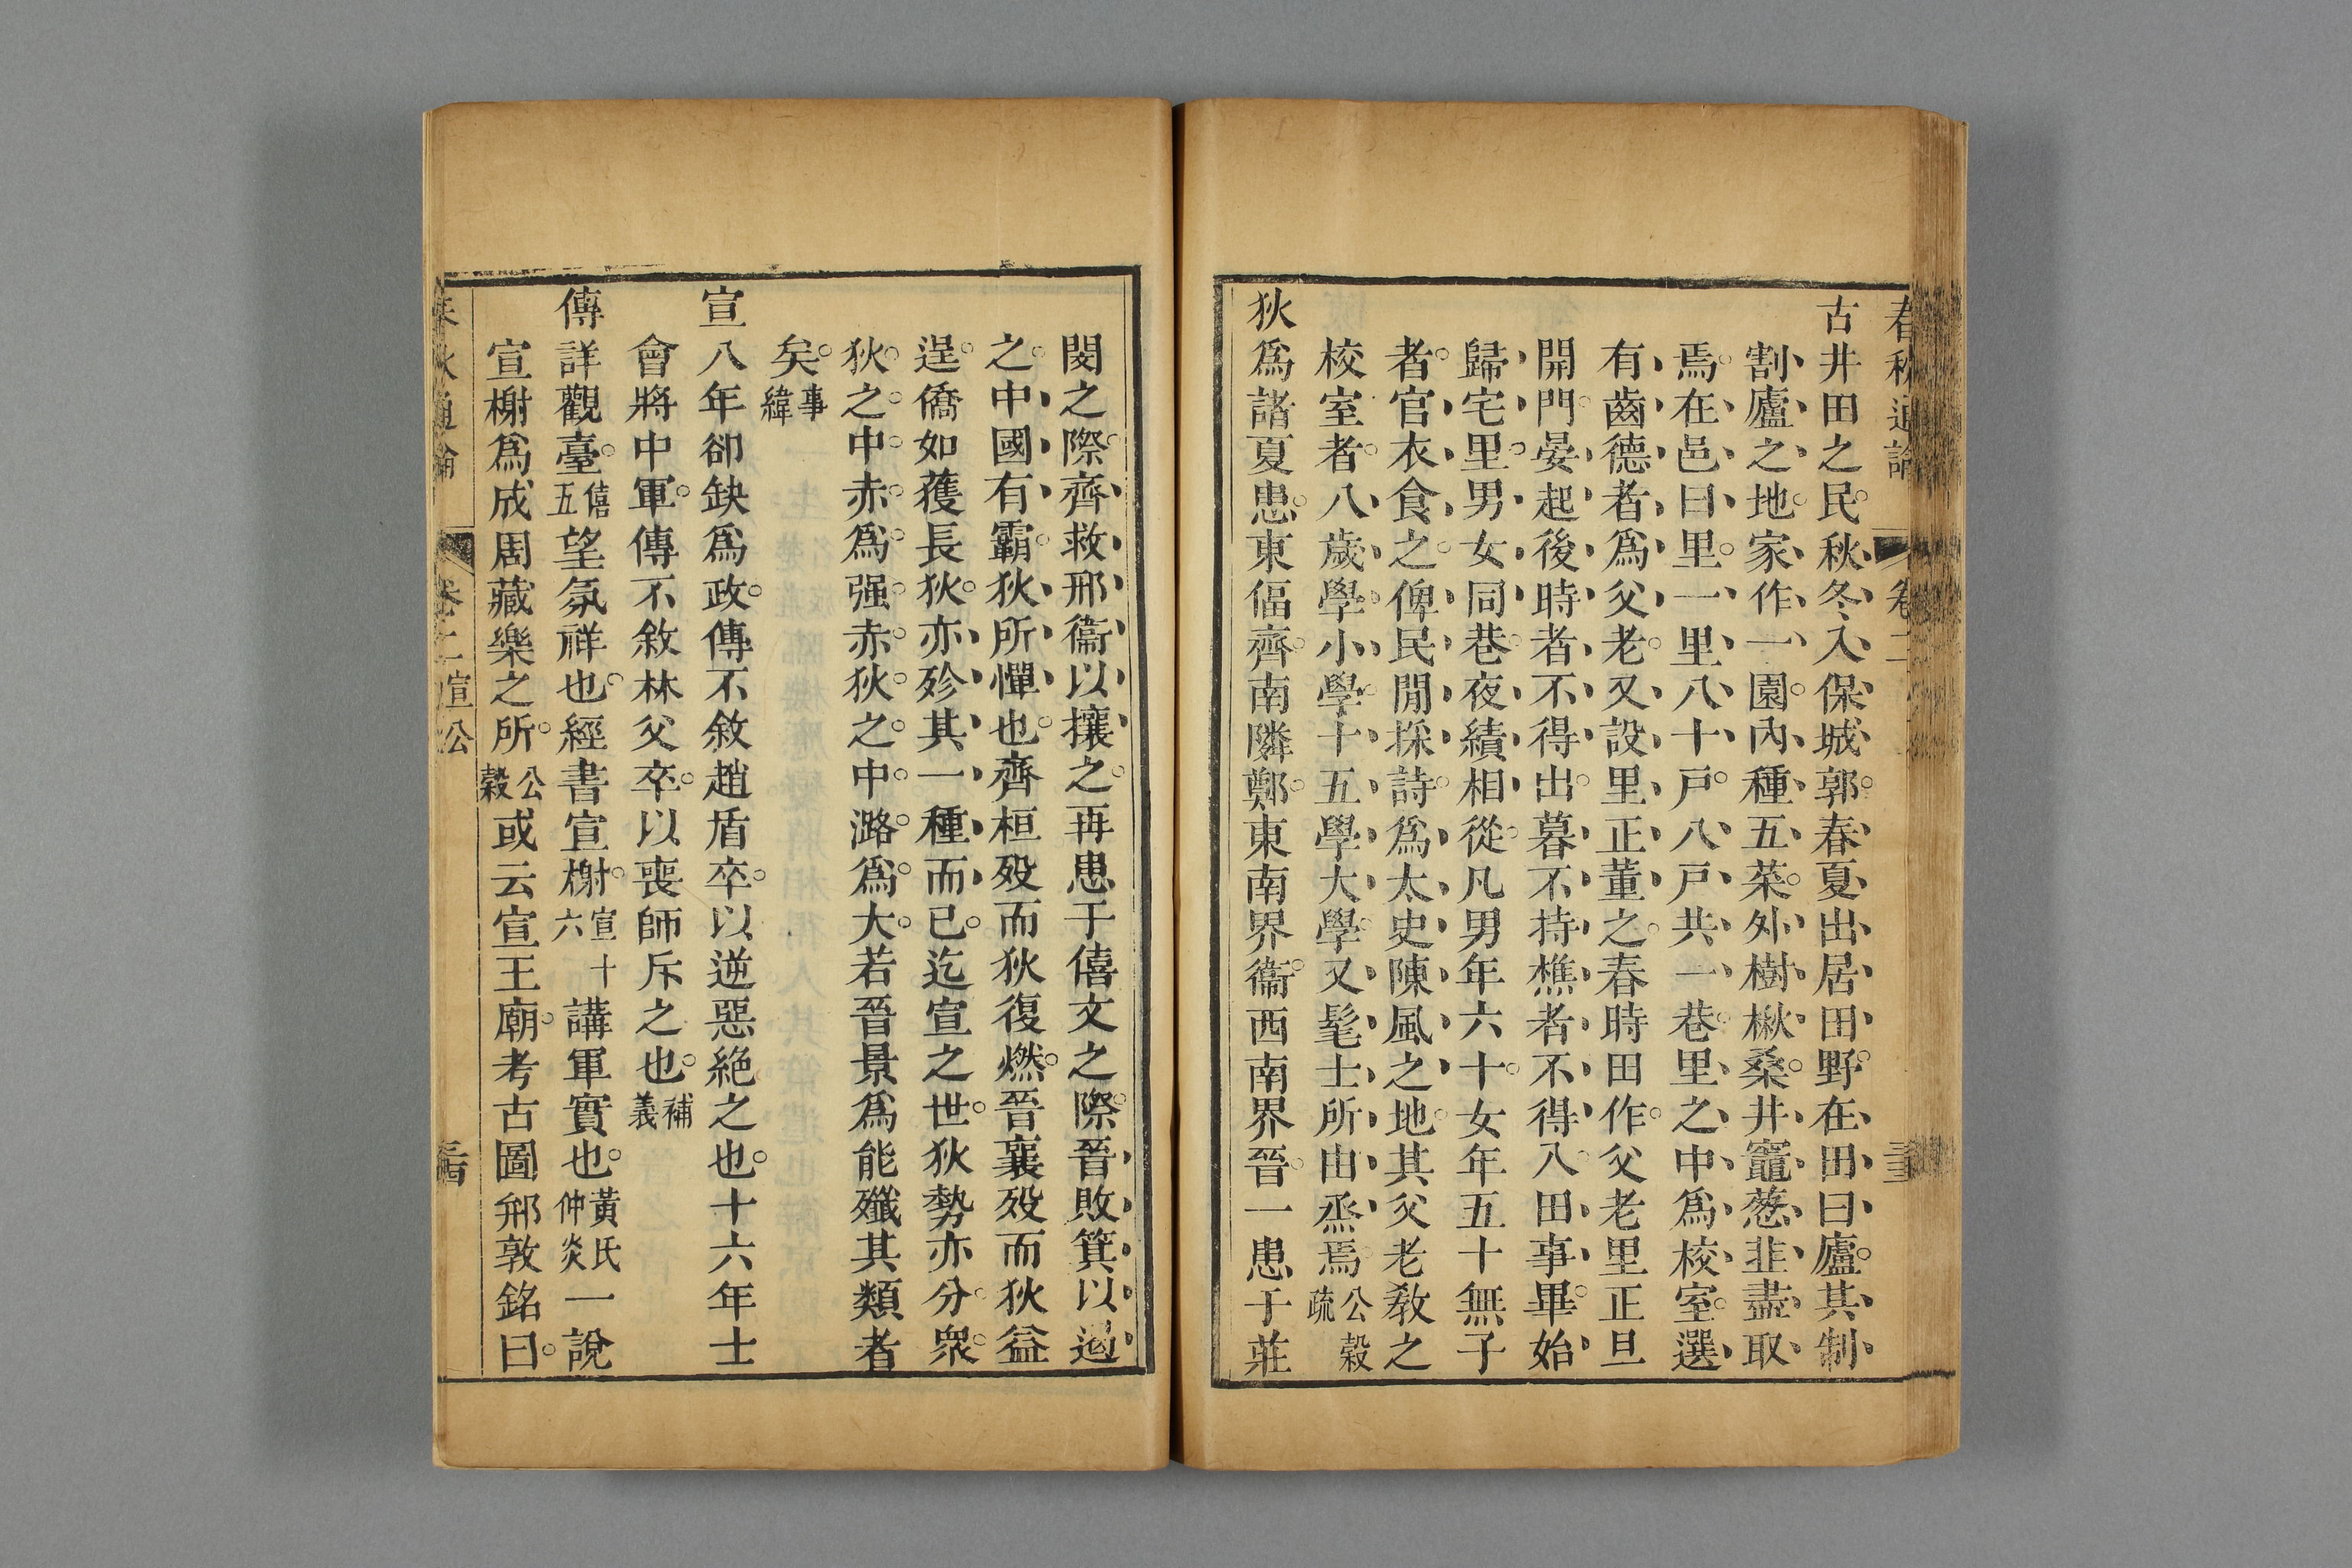 春秋通論
卷二
古井田之民秋冬入保城郭春夏出居田野在田曰廬其制
割廬之地家作一園內種五菜外樹楸桑井竈葱韭盡取
焉在邑曰里一里八十戸八戸共一巷里之中為校室選
有齒德者為父老又設里正董之春時田作父老里正旦
開門晏起後時者不得出暮不持樵者不得入田事畢始
歸宅里男女同巷夜績相從凡男年六十女年五十無子
者官衣食之俾民閒採詩為太史陳風之地其父老敎之
校室者八歲學小學十五學大學又髦士所由烝焉公穀疏
狄為諸夏患東偪齊南隣鄭東南界衞西南界晉一患于莊
閔之際齊救邢衞以攘之再患于僖文之際晉敗箕以遏
之中國有霸狄所憚也齊桓歿而狄復燃晉襄歿而狄益
逞僑如獲長狄亦殄其一種而已迄宣之世狄勢亦分衆
狄之中赤為强赤狄之中潞為大若晉景為能殲其類者
矣事緯
宣八年卻缺為政傳不敘趙盾卒以逆惡絕之也十六年士
會將中軍傳不敘林父卒以喪師斥之也補義
傳詳觀臺僖五望氛祥也經書宣榭宣十六講軍實也黃氏仲炎一說
宣榭為成周藏樂之所公穀或云宣王廟考古圖𨛭敦銘曰
秋通論
卷二宣公